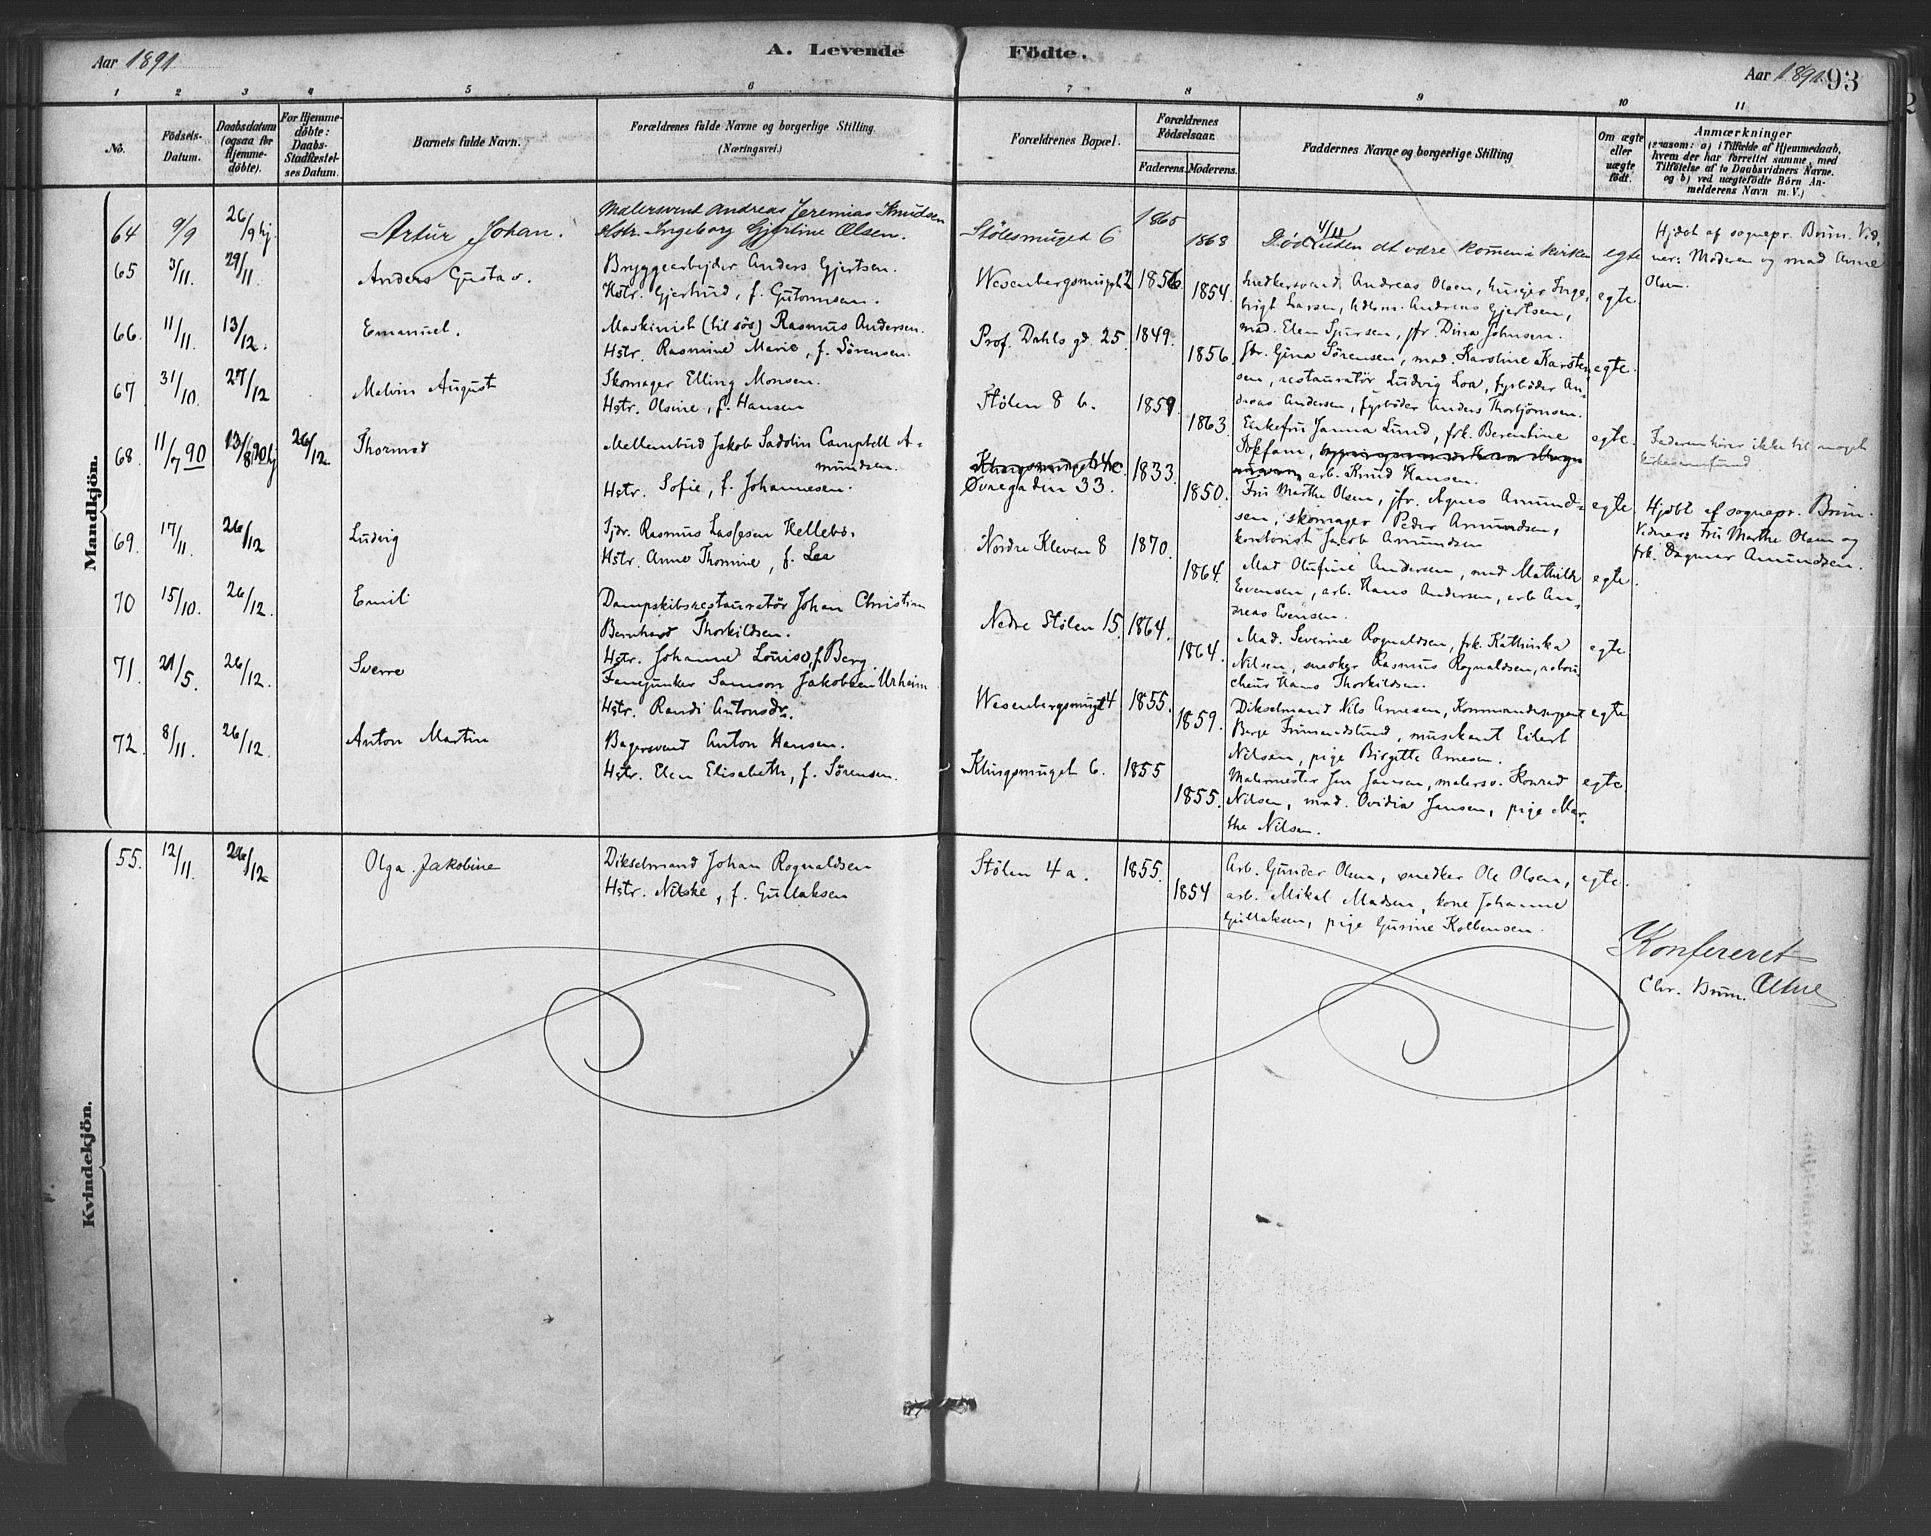 Aar 1891
A. Levende Födte.
Aar 1891. 93
1 2 3 4 5 6 7 8 9 10 11
No.
Födsels-Datum.
Daabsdatum (ogsaa for Hjemmedöbte).
For Hjemmedöbte: Daabs-Stadfæstelses Datum.
Barnets fulde Navn.
Forældrenes fulde Navne og borgerlige Stilling. (Næringsvei.)
Forældrenes Bopæl.
Forældrenes Födselsaar.
Faderens. Moderens.
Faddernes Navne og borgerlige Stilling
Om ægte eller uægte födt.
Anmærkninger
(saasom: a) i Tilfælde af Hjemmedaab,
hvem der har forrettet samme, med
Tilföielse af to Daabsvidners Navne.
og b) ved uægtefödte Börn An-
melderens Navn m. V.)
Mandkjön.
64 9/9 26/9 hj. Artur Johan. Malersvent Andreas Jeremias Knudsen
Hstr. Ingeborg Gjertine Olsen.
Stølesmuget 6 1865 1868 Død 4/11 uden at være komen i kirken egte
Hjdøbt af sognepr. Brun. Vid,
ner: Moderen og mad Anne
Olsen.
65 3/11. 29/11. Anders Gustav. Bryggearbejder Anders Gjertsen.
Hstr. Gjertrud, f. Guttormsen.
Wesenbergsmuget 2 1856 1854. Snedkersvend. Andreas Olsen, husejer Inge,
brigt Larsen, Andreas Gjertsen,
mad. Elen Sjursen, jfr. Dina Johnsen. egte.
66. 11/11. 13/12. Emanuel. Maskinist (til søs) Rasmus Andersen.
Hstr. Rasmine Marie, f. Sørensen.
Prof. Dahls gd. 25. 1849. 1856. fbr. Gina Sørensen, mad. Karoline Karsten
sen, restauratør Ludvig Loa, fyrbøder An
dreas Andersen, fyrbøder Anders Thorbjørnsen. egte.
67 31/10. 27/12 Melvin August Skomager Elling Monsen.
Hstr. Olsine, f. Hansen
Stølen 8 b. 1859 1863. Enkefru Janna Lund, frk. Berentine
arb. Knud Hansen. egte.
Faderen hører ikke til noget
kirkesamfund
68. 11/7 90 13/8 90 hj 26/12 Thormod Mellembud Jakob Sadolin Campbell A-
mundsen.
Hstr. Sofie, f. Johannesen.
Øvregaden 33. 1833. 1850. Fru Marthe Olsen, jfr. Agnes Amund-
sen, skomager Peder Amundsen,
kontorist Jacob Amundsen egte
Hjdøbt af sognepr. Brun.
Vidner: Fru Marthe Olsen og
frk. Dagmar Amundsen.
69. 17/11. 26/12 Ludvig Rasmus Lassesen Hellebø.
Hstr. Anne Thomine, f. Lea
Nordre Kleven 8 1870. 1864. Mad Olufine Andersen, mad Mathilde
Evensen, arb. Hans Andersen, arb An,
dreas Evensen. egte.
70 15/10. 26/12. Emil Dampskibsrestauratør Johan Christian
Bernhard Thorkildsen.
Hstr. Johanne Louise, f. Berg.
Nedre Stølen 15. 1864. 1864. Mad. Severine Rognaldsen, frk. Kathinka
Nilsen, snedker Rasmus Rognaldsen,
Hans Thorkildsen. egte.
71. 21/5. 26/12. Sverre Fanejunker Samson Jakobsen Urheim
Hstr. Randi Antonsdr.
Wesenbergsmuget 4 1855. 1859. Dikselmand Nils Arnesen, Kommandersergeant
Berge Frimandslund, musikant Eilert
Nilsen, pige Birgitte Arnesen. egte
72. 8/11. 26/12. Anton Martin Bagersvend Anton Hansen.
Hstr. Elen Elisabeth, f. Sørensen.
Klingsmuget 6. 1855 1855. Malermester Jen Jansen, malersv. Konrad
Nilsen, mad. Ovidia Jensen, pige Mar-
the Nilsen. egte.
Kvindekjön.
55. 12/11. 26/12 Olga Jakobine Dikselmand Johan Rognaldsen
Hstr. Nilske, f. Gullaksen
Stølen 4 a. 1855. 1854 Arb. Gunder Olsen, snedker Ole Olsen,
arb. Mikal Madsen, kone Johanne
Gullaksen, pige Gurine Kolbensen. egte.
Konfereret
Chr. Brun.